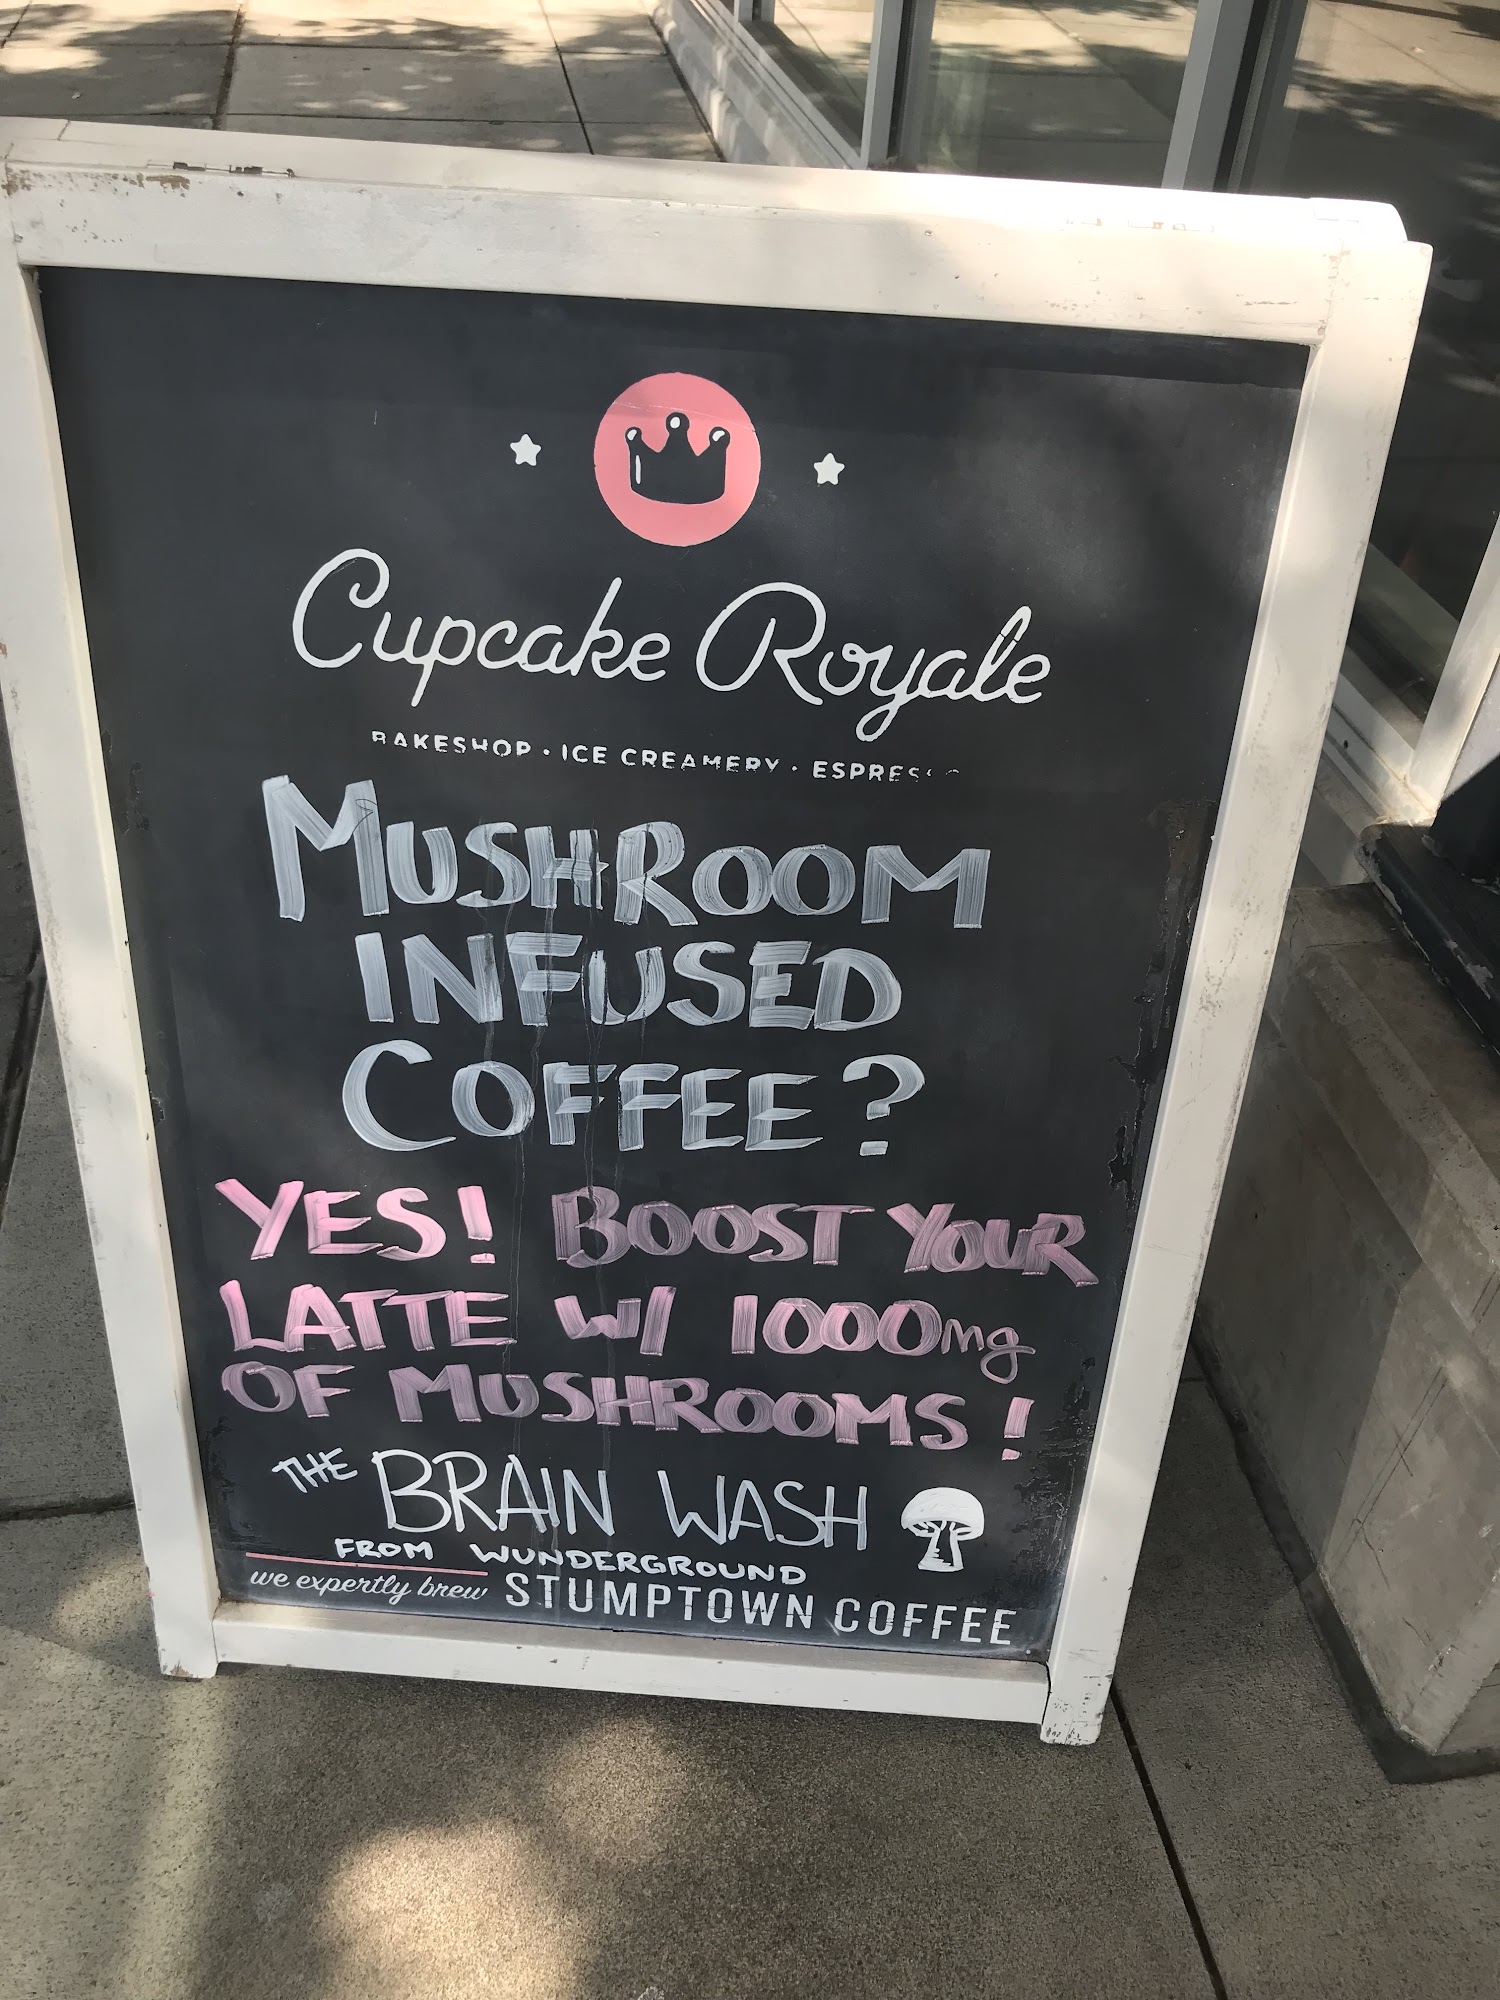 Cupcake Royale
BAKESHOP · ICE CREAMERY · ESPRESSO
MUSHROOM
INFUSED
COFFEE?
YES! BOOST YOUR
LATTE W/ 1000mg
OF MUSHROOMS!
THE BRAIN WASH
FROM WUNDERGROUND
we expertly brew STUMPTOWN COFFEE